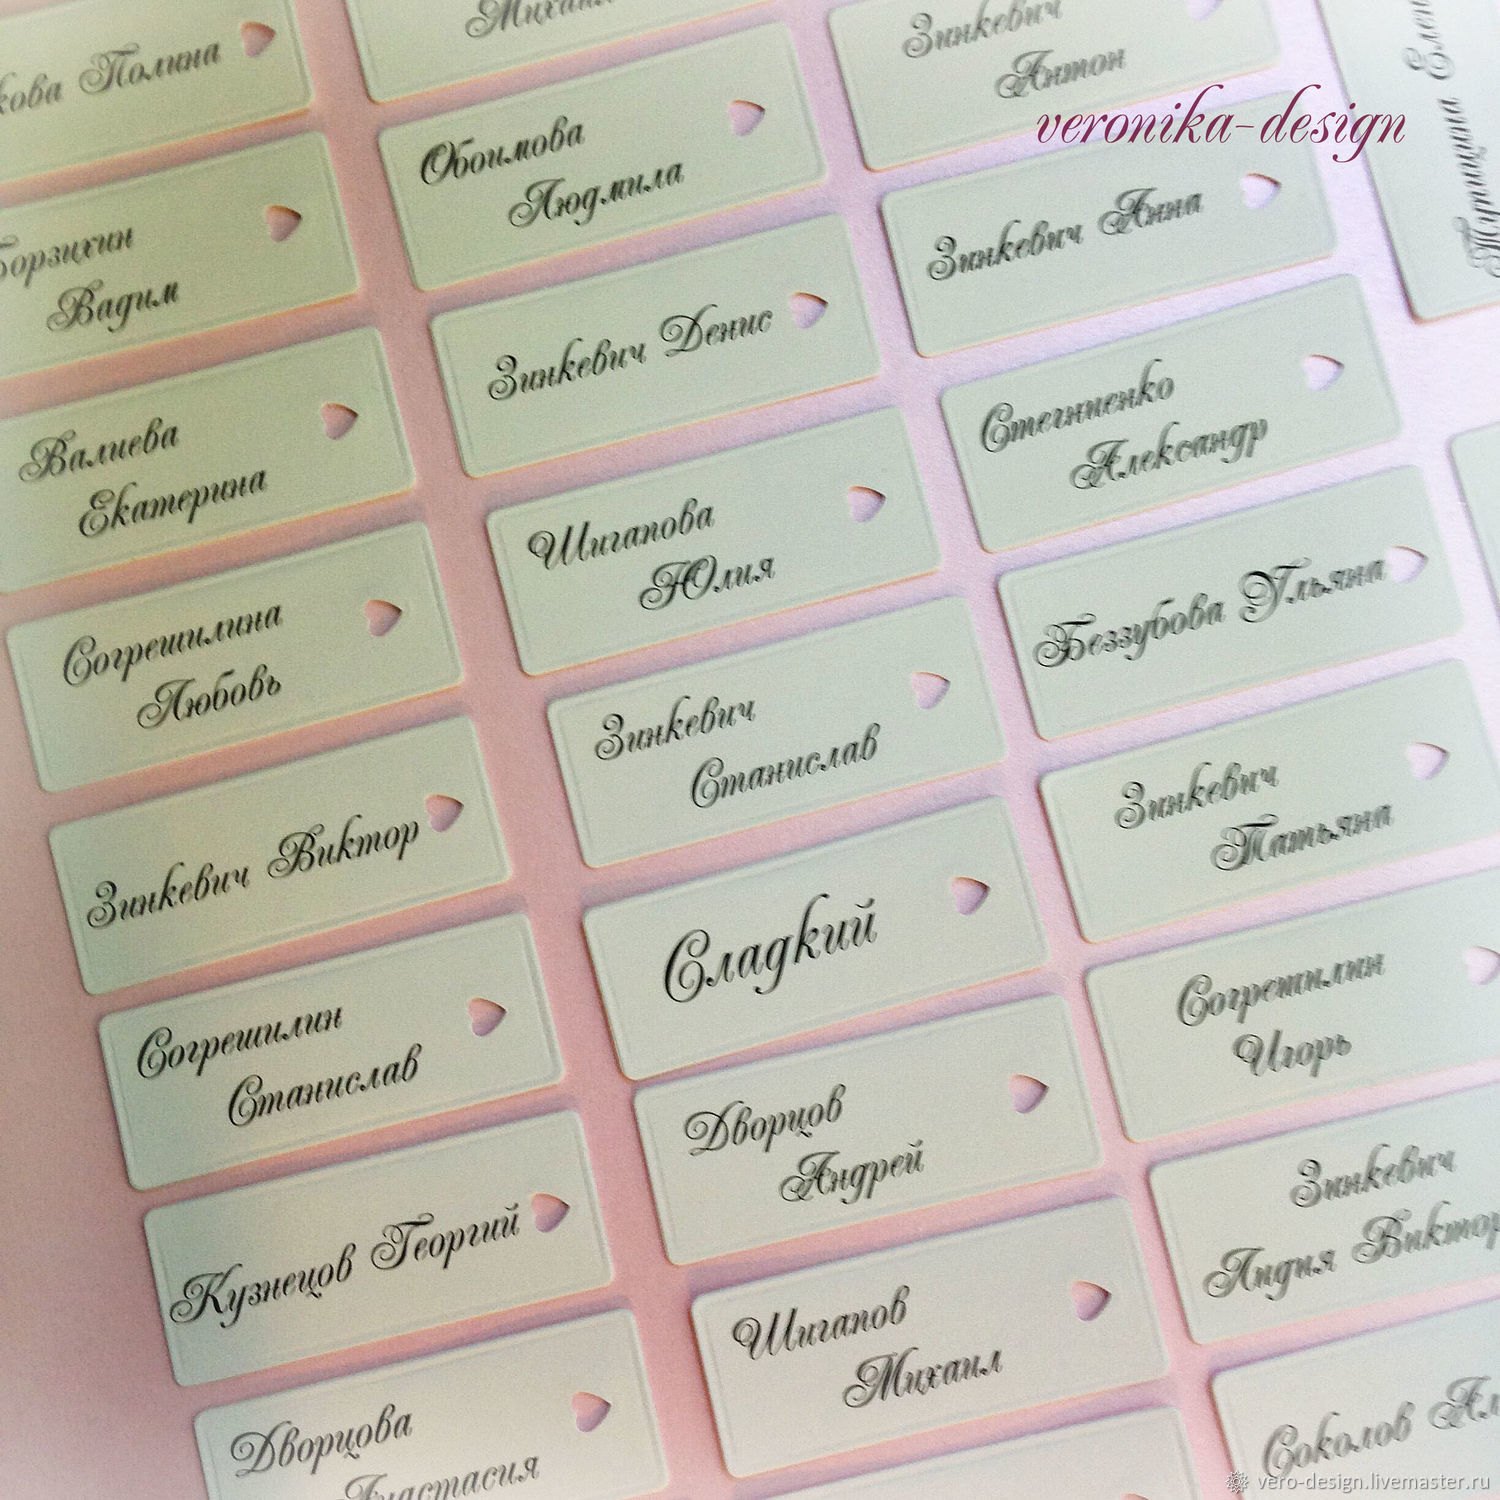 кова Полина
Борзихин
Вадим
Валиева
Екатерина
Согрешилина
Любовь
Зинкевич Виктор
Согрешилин
Станислав
Кузнецов Георгий
Дворцова
Анастасия
Михаил
Обоимова
Людмила
Зинкевич Денис
Шигапова
Юлия
Зинкевич
Станислав
Сладкий
Дворцов
Андрей
Шигапов
Михаил
Зинкевич
Антон
veronika-design
Зинкевич Анна
Стегниенко
Александр
Беззубова Ульяна
Зинкевич
Татьяна
Согрешилин
Игорь
Зинкевич
Лидия Виктор
Соколов Ал
vero-design.livemaster.ru